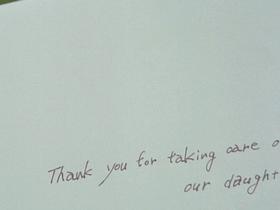 Thank you for taking care o
our daught